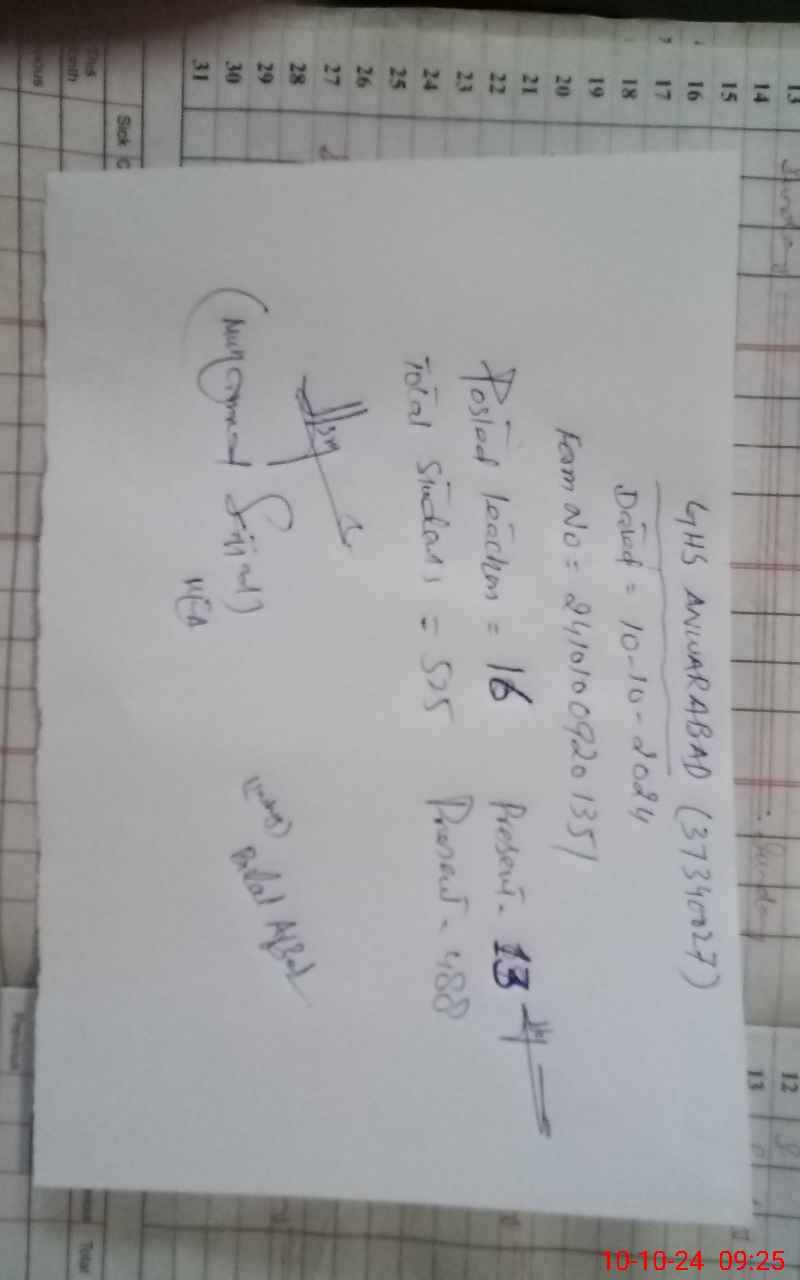 GHS ANWARABAD (37340027)
Dated = 10-10-2024
Form No = 24101009201351
Posted teachers = 16 Present - 13
Total Students = 525 Present - 488
(Muhammad Sajjad)
MEA
Bilal Afzal
13
14
15
16
17
18
19
20
21
22
23
24
25
26
27
28
29
30
31
Sick
Sunday
Sunday
12
13
Total
10-10-24 09:25